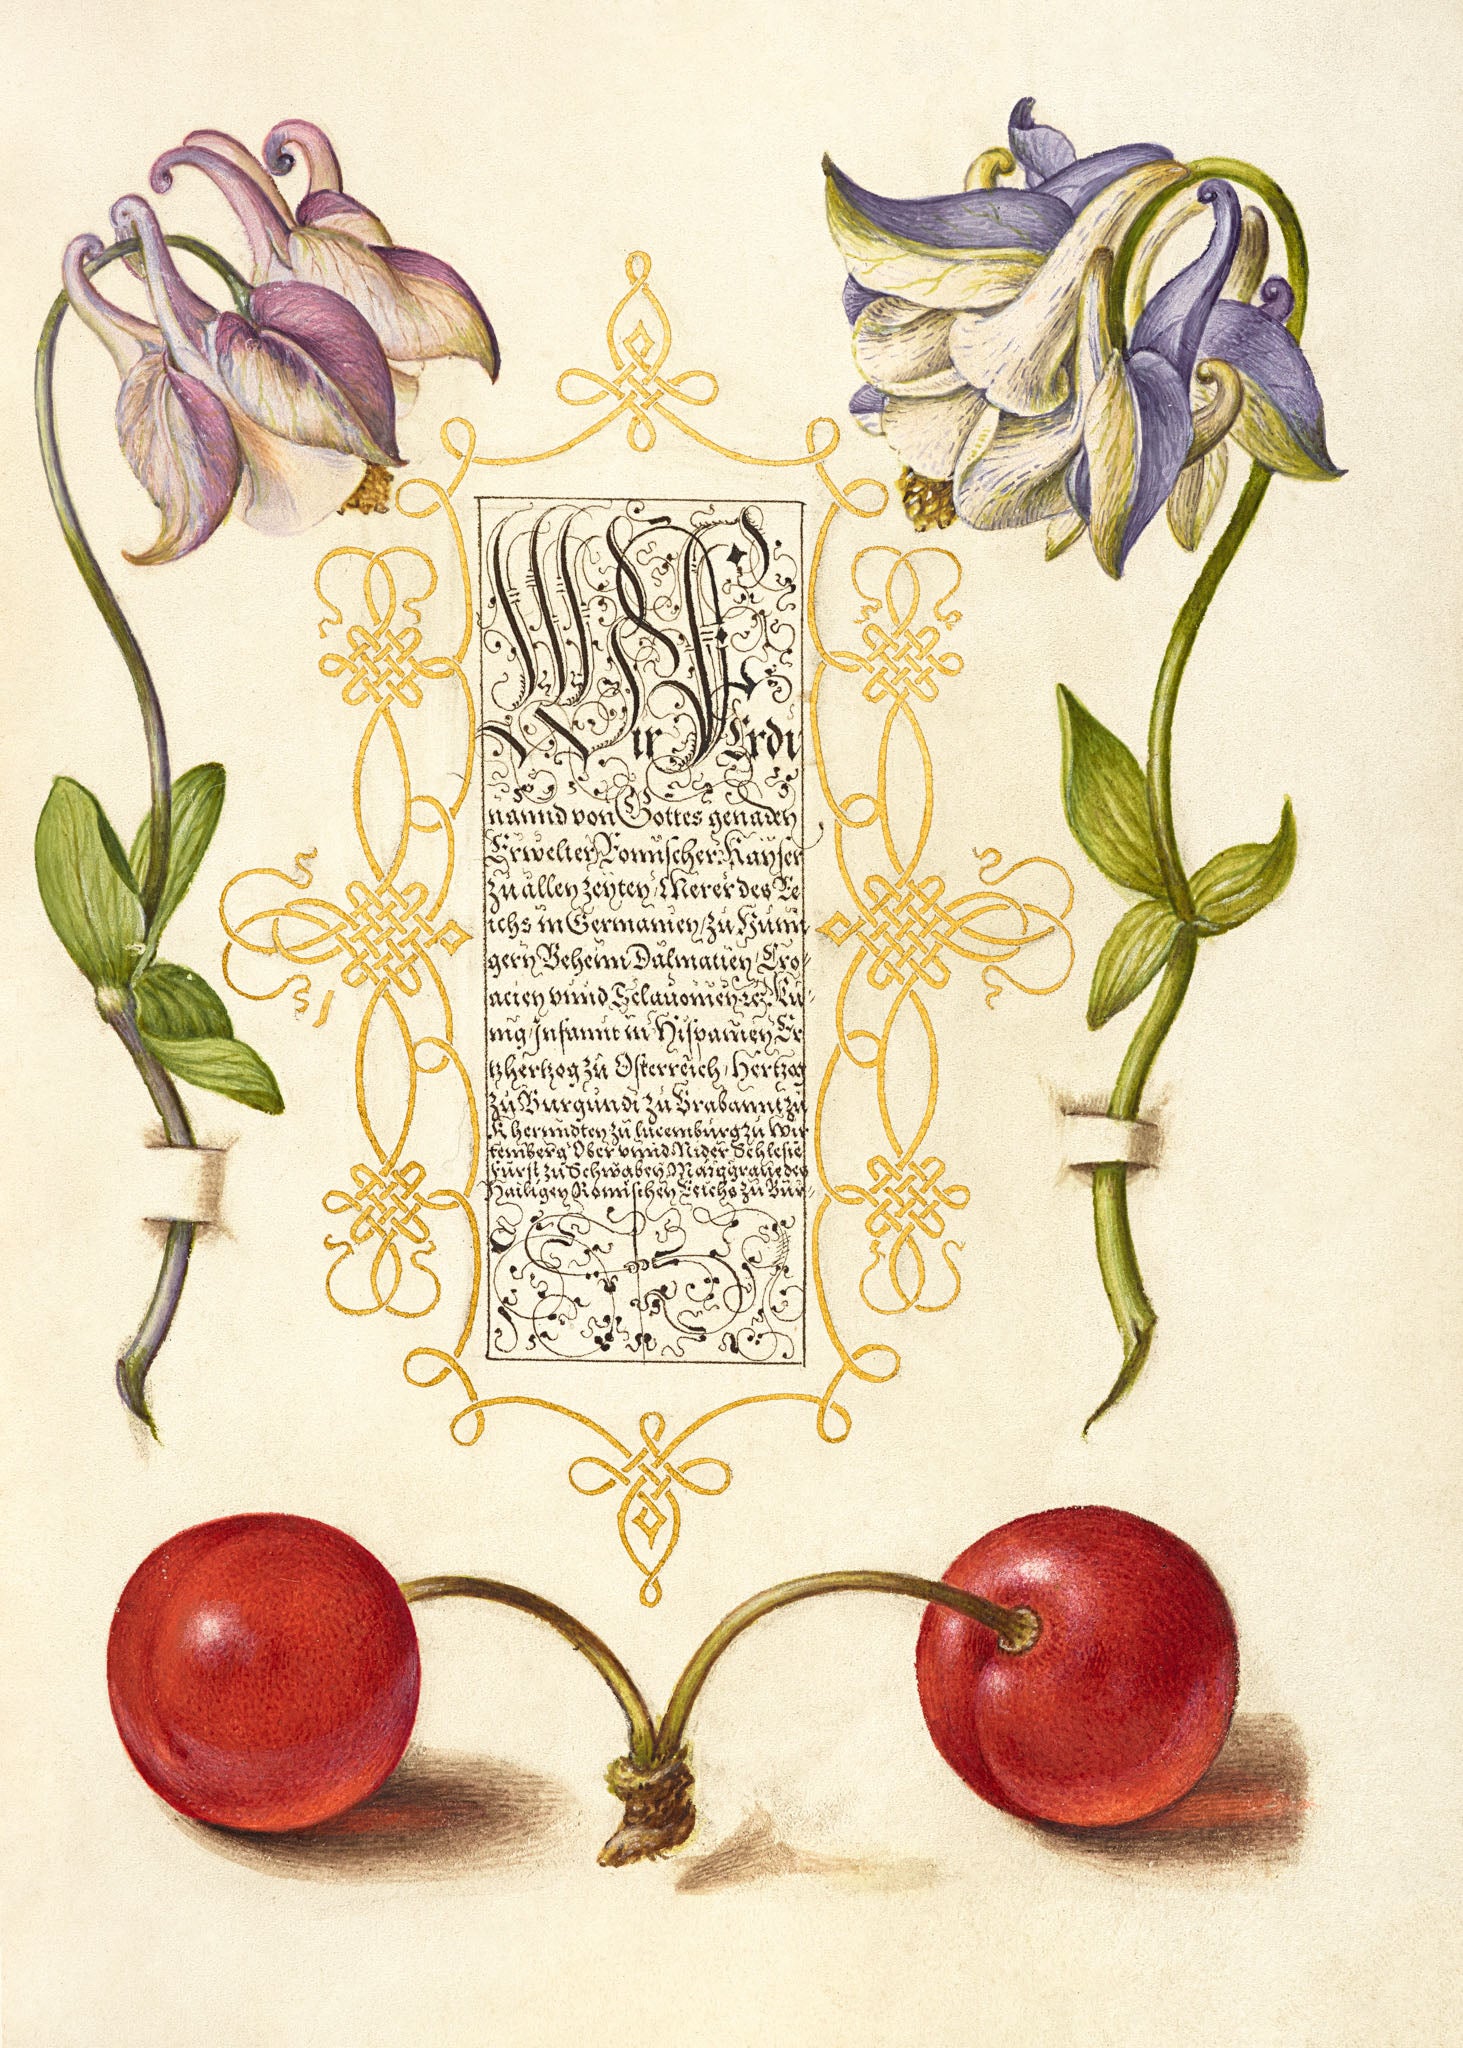 Wir Ferdi
nannd von Gottes genaden
Erwelter Romischer Kayser
zu allen zeyten, Merer des Re
ichs in Germanien, zu Hunn
gern Beheim Dalmatien, Cro-
acien vnnd Sclauonien, rc̃. Ku-
nig, Infannt in Hispanien, Er
tzhertzog zu Osterreich, Hertzog
zu Burgundi zu Brabannt zu
Kherndten zu lucemburg zu Wir
temberg Ober vnnd Nider Schlesie
Furst zu Schwaben, Marggraue des
Hailigen Romischen Reichs zu Bur-